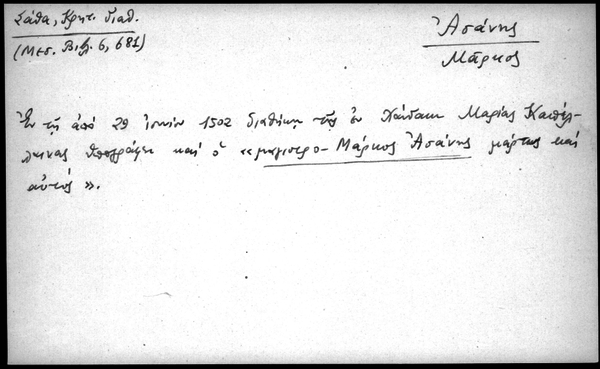 Σάθα, Κρητ. διαθ.
(Μεσ. Βιβλ. 6, 681)
Ἀσάνης
Μᾶρκος
Ἐν τῇ ἀπό 29 ἰουνίου 1502 διαθήκῃ τῆς ἐν Χάνδακι Μαρίας
ὑπογράφει καί ὁ «μαγιστρο-Μάρκος Ἀσάνης μάρτυς καί
αὐτός».